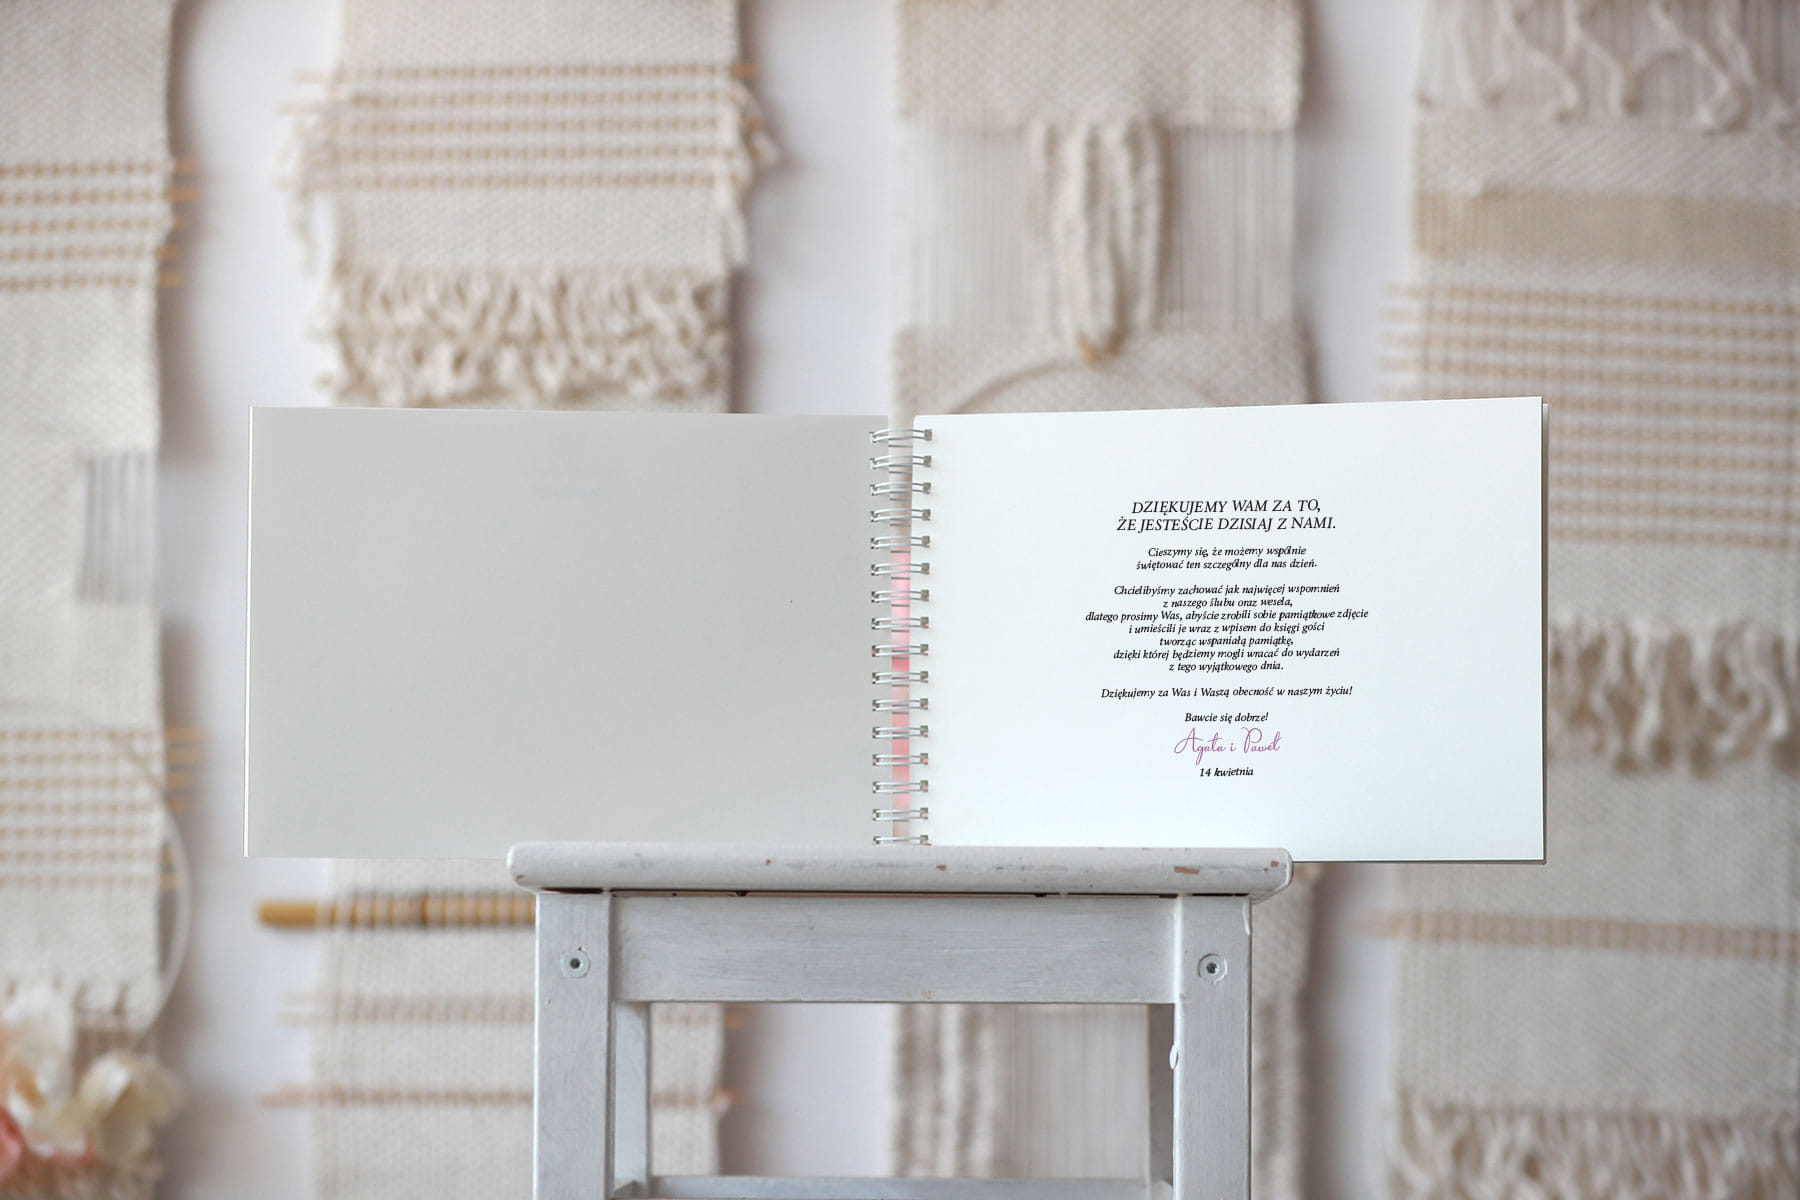 DZIĘKUJEMY WAM ZA TO,
ŻE JESTEŚCIE DZISIAJ Z NAMI.
Cieszymy się, że możemy wspólnie
świętować ten szczególny dla nas dzień.
Chcielibyśmy zachować jak najwięcej wspomnień
z naszego ślubu oraz wesela,
dlatego prosimy Was, abyście zrobili sobie pamiątkowe zdjęcie
i umieścili je wraz z wpisem do księgi gości
tworząc wspaniałą pamiątkę,
dzięki której będziemy mogli wracać do wydarzeń
z tego wyjątkowego dnia.
Dziękujemy za Was i Waszą obecność w naszym życiu!
Bawcie się dobrze!
Agata i Paweł
14 kwietnia